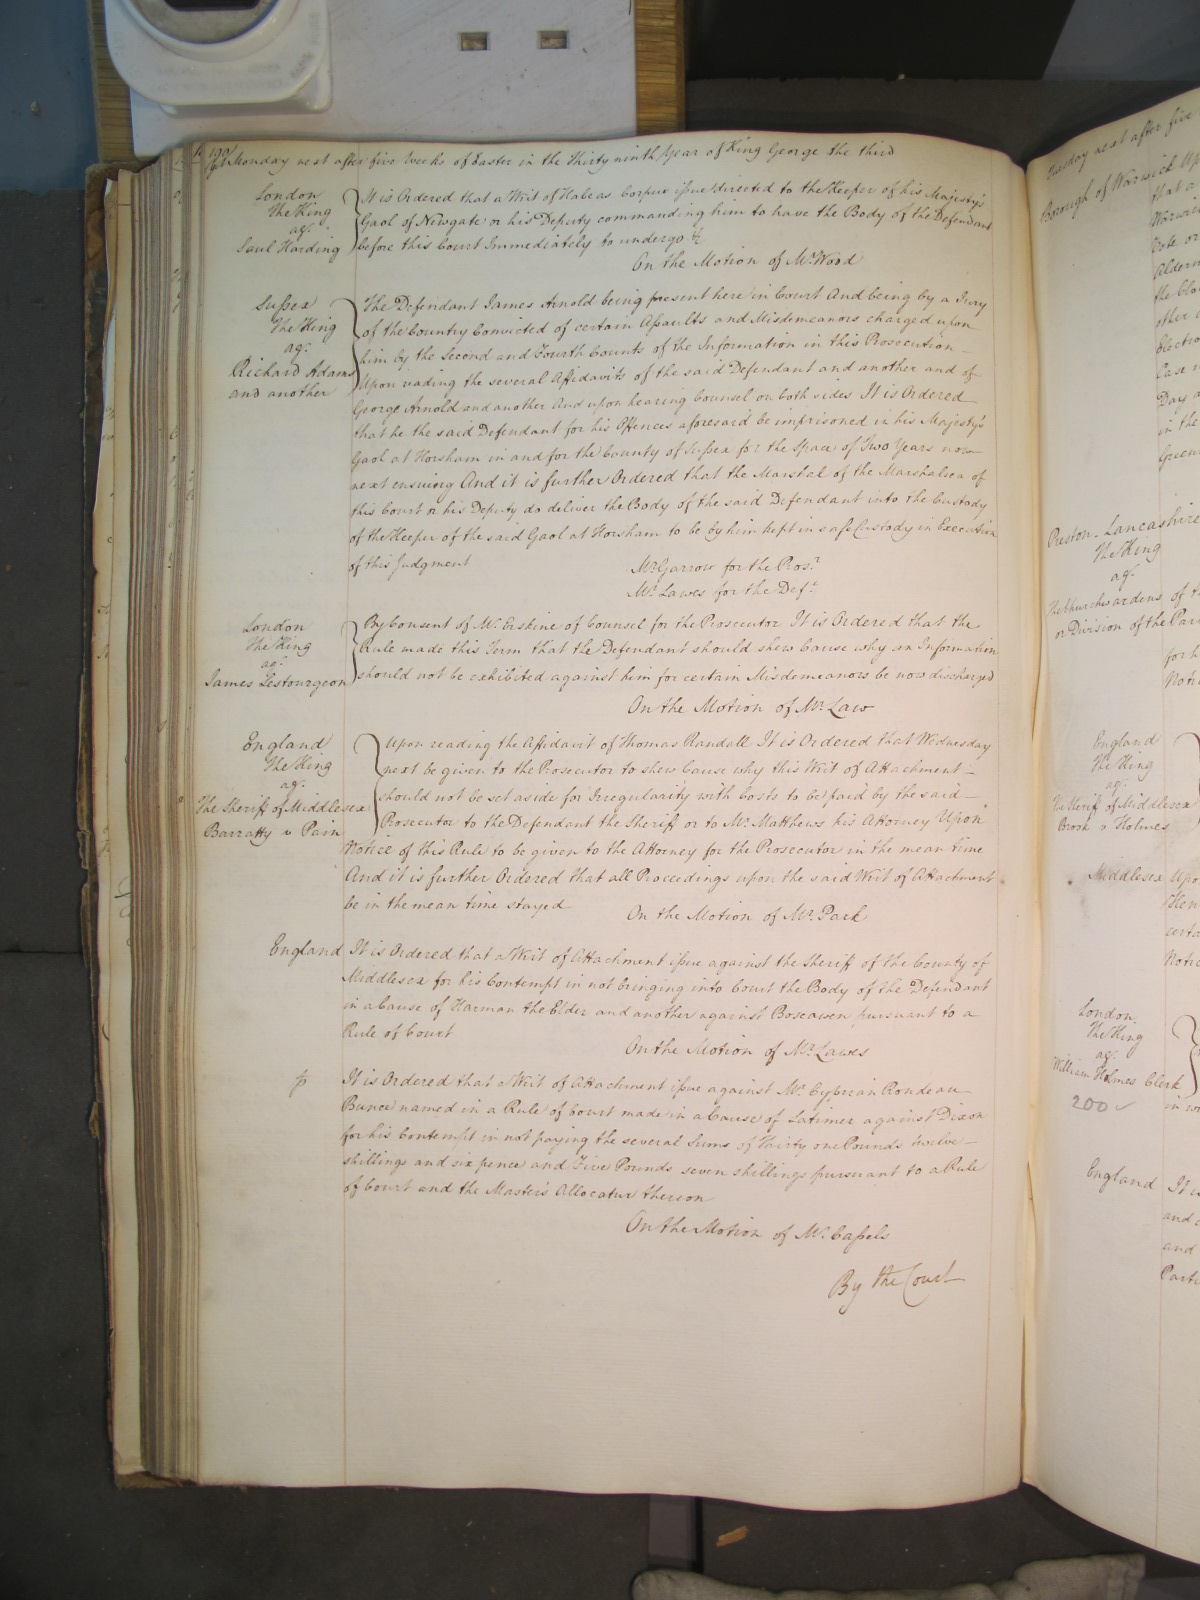 Monday next after five Weeks of Easter in the Thirty ninth Year of King George the third
London
The King
agt
Saul Harding
It is Ordered that a Writ of Habeas Corpus issue directed to the Keeper of his Majesty's
Gaol of Newgate or his Deputy commanding him to have the Body of the Defendant
before this Court Immediately to undergo &c
On the Motion of Mr Wood
Sussex
The King
agt
Richard Adams
and another
The Defendant James Arnold being present here in Court And being by a Jury
of the Country Convicted of certain Assaults and Misdemeanors charged upon
him by the Second and Fourth Counts of the Information in this Prosecution
Upon reading the several Affidavits of the said Defendant and another and of
George Arnold and another And upon hearing Counsel on both sides It is Ordered
that he the said Defendant for his Offences aforesaid be imprisoned in his Majesty's
Gaol at Horsham in and for the County of Sussex for the Space of Two Years now
next ensuing And it is further Ordered that the Marshal of the Marshalsea of
this Court or his Deputy do deliver the Body of the said Defendant into the Custody
of the Keeper of the said Gaol at Horsham to be by him kept in safe Custody in Execution
of this Judgment
Mr Garrow for the Prosr
Mr Lawes for the Deft
London
The King
agt
James Lestourgeon
By Consent of Mr Erskine of Counsel for the Prosecutor It is Ordered that the
Rule made this Term that the Defendant should shew Cause why an Information
should not be exhibited against him for certain Misdemeanors be now discharged
On the Motion of Mr Law
England
The King
agt
The Sheriff of Middlesex
Barratty v Pain
Upon reading the Affidavit of Thomas Randall It is Ordered that Wednesday
next be given to the Prosecutor to shew Cause why this Writ of Attachment
should not be set aside for Irregularity with Costs to be paid by the said
Prosecutor to the Defendant the Sheriff or to Mr Matthews his Attorney Upon
Notice of this Rule to be given to the Attorney for the Prosecutor in the mean time
And it is further Ordered that all Proceedings upon the said Writ of Attachment
be in the mean time stayed
On the Motion of Mr Park
England
It is Ordered that a Writ of Attachment issue against the Sheriff of the County of
Middlesex for his Contempt in not bringing into Court the Body of the Defendant
in a Cause of Harman the Elder and another against Boscawen pursuant to a
Rule of Court
On the Motion of Mr Lawes
It is Ordered that a Writ of Attachment issue against Mr Cyprian Rondeau
Bunce named in a Rule of Court made in a Cause of Latimer against Dixon
for his Contempt in not paying the several Sums of Thirty one Pounds twelve
shillings and six pence and Five Pounds seven shillings pursuant to a Rule
of Court and the Master's Allocatur thereon
On the Motion of Mr Cassels
By the Court
Tuesday next after five
Borough of Warwick Up
that a
Warwic
Vote or
Alderm
the Clo
other
Electio
Case
Day a
in the
Preston Lancashire
The King
agt
The Churchwardens of t
or Division of the Par
for h
Notic
England
The King
agt
The Sheriff of Middlesex
Brook v Holmes
Middlesex Upo
Hen
certa
Notic
London
The King
agt
William Holmes Clerk
200
England It is
and
and
Parti